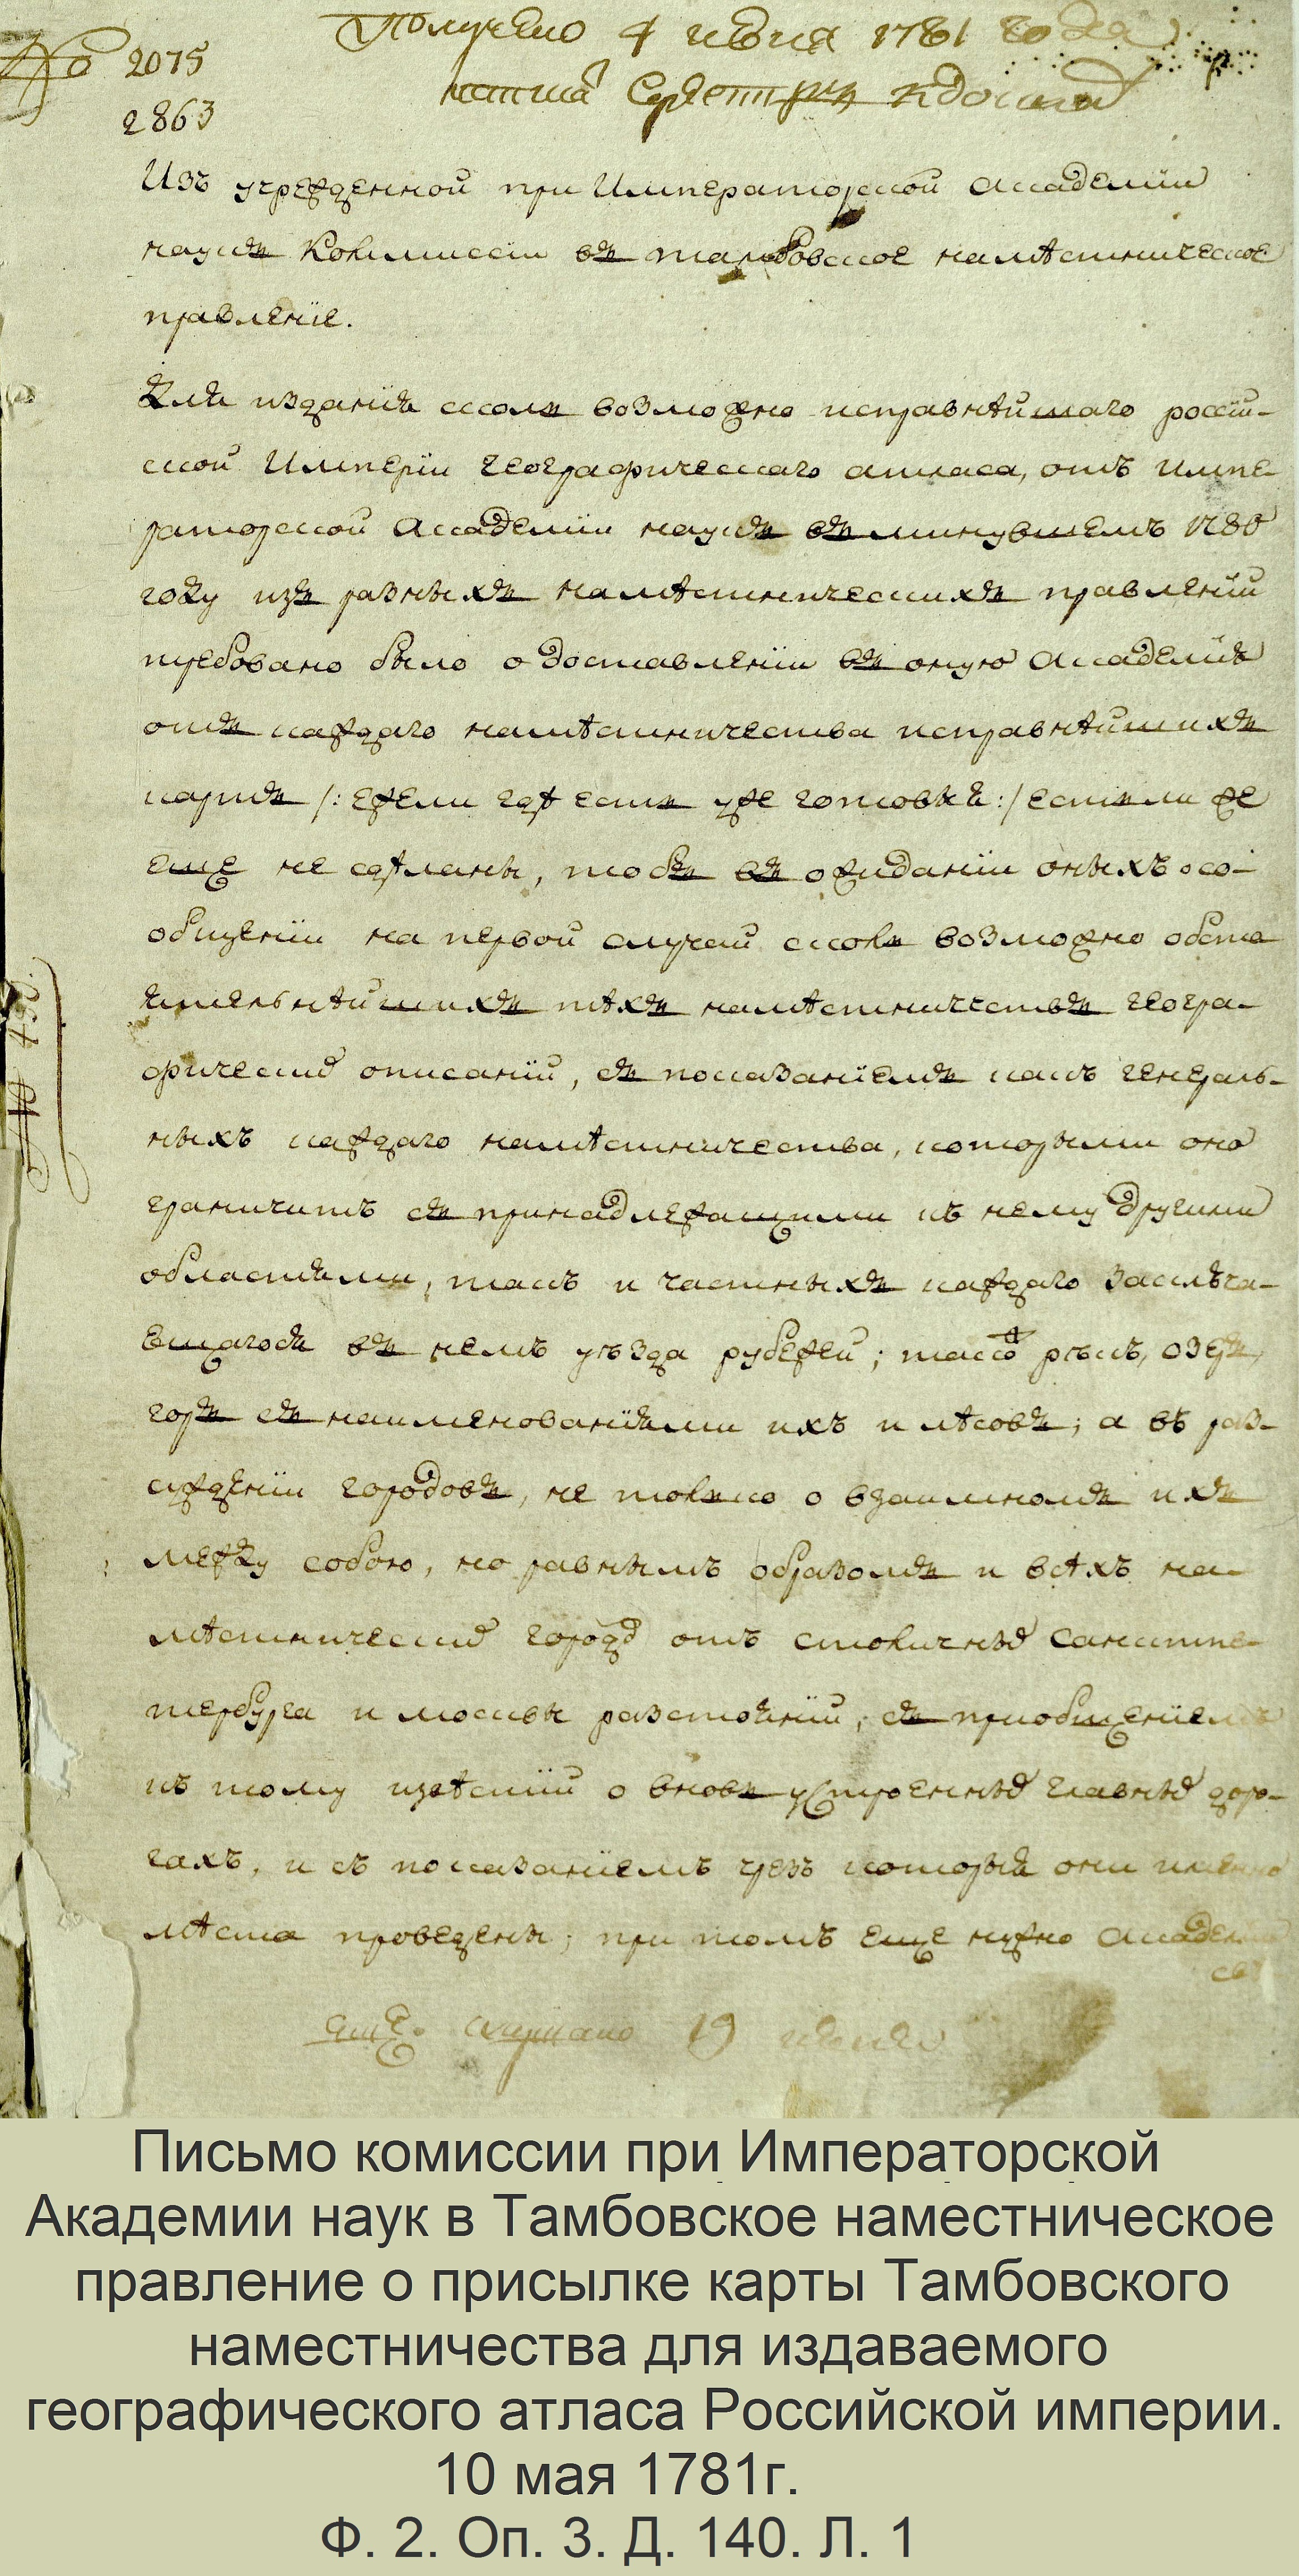 Получено 4 июня 1781 года
№ 2075
2863
Изъ учрежденной при Императорской академїи
наукъ Коммиссїи въ тамбовское намѣстническое
правленїе.
Для изданїя сколь возможно исправнѣйшаго россїй-
ской Имперїи географическаго атласа, отъ импе-
раторской академїи наукъ въ минувшемъ 1780
году изъ разныхъ намѣстническихъ правленїй
требовано было о доставленїи въ оную академїю
отъ каждаго намѣстничества исправнѣйшихъ
картъ /: ежели гдѣ есть уже готовыя :/ естьли же
еще не сдѣланы, тобъ въ ожиданїи оныхъ о со-
общенїи на первой случай сколь возможно обсто
ятельнѣйшихъ тѣхъ намѣстничествъ геогра-
фически описанїй, съ показанїемъ какъ генераль-
ныхъ каждаго намѣстничества, которыми оно
граничитъ съ принадлежащими къ нему другими
областями, такъ и частныхъ каждаго заключа-
ющагося въ немъ уѣзда рубежей; также рѣкъ, озеръ,
горъ съ наименованїями ихъ и лѣсовъ; а въ раз-
сужденїи городовъ, не только о взаимномъ ихъ
между собою, но равнымъ образомъ и всѣхъ на-
мѣстнически городо отъ столичны Санктпе-
тербурга и москвы разстоянїй, съ прїобщенїемъ
къ тому извѣстїй о вновь устроенны главны доро-
гахъ, и съ показанїемъ чрезъ которыя они именно
мѣста проведены; при томъ еще нужно академїи
№ 450.
19 июня
Письмо комиссии при Императорской
Академии наук в Тамбовское наместническое
правление о присылке карты Тамбовского
наместничества для издаваемого
географического атласа Российской империи.
10 мая 1781г.
Ф. 2. Оп. 3. Д. 140. Л. 1